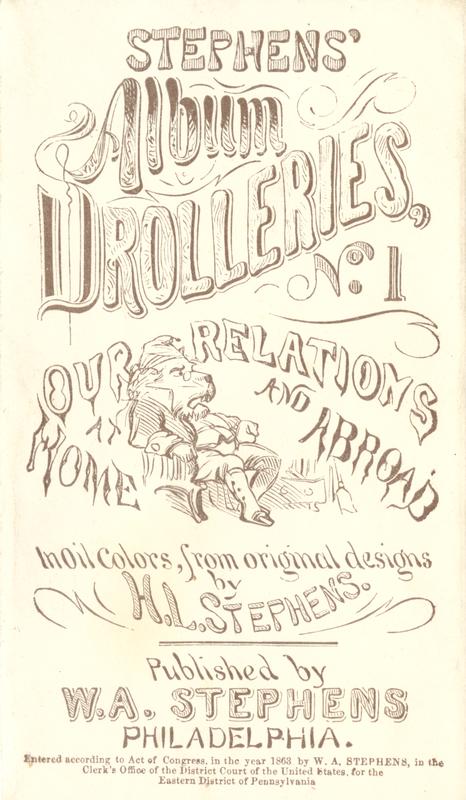 STEPHENS'
Album
DROLLERIES,
No. 1
OUR RELATIONS
AT HOME AND ABROAD
In Oil Colors, from original designs
by
H.L. STEPHENS.
Published by
W.A. STEPHENS
PHILADELPHIA.
Entered according to Act of Congress, in the year 1863 by W. A. STEPHENS, in the
Clerk's Office of the District Court of the United States, for the
Eastern District of Pennsylvania